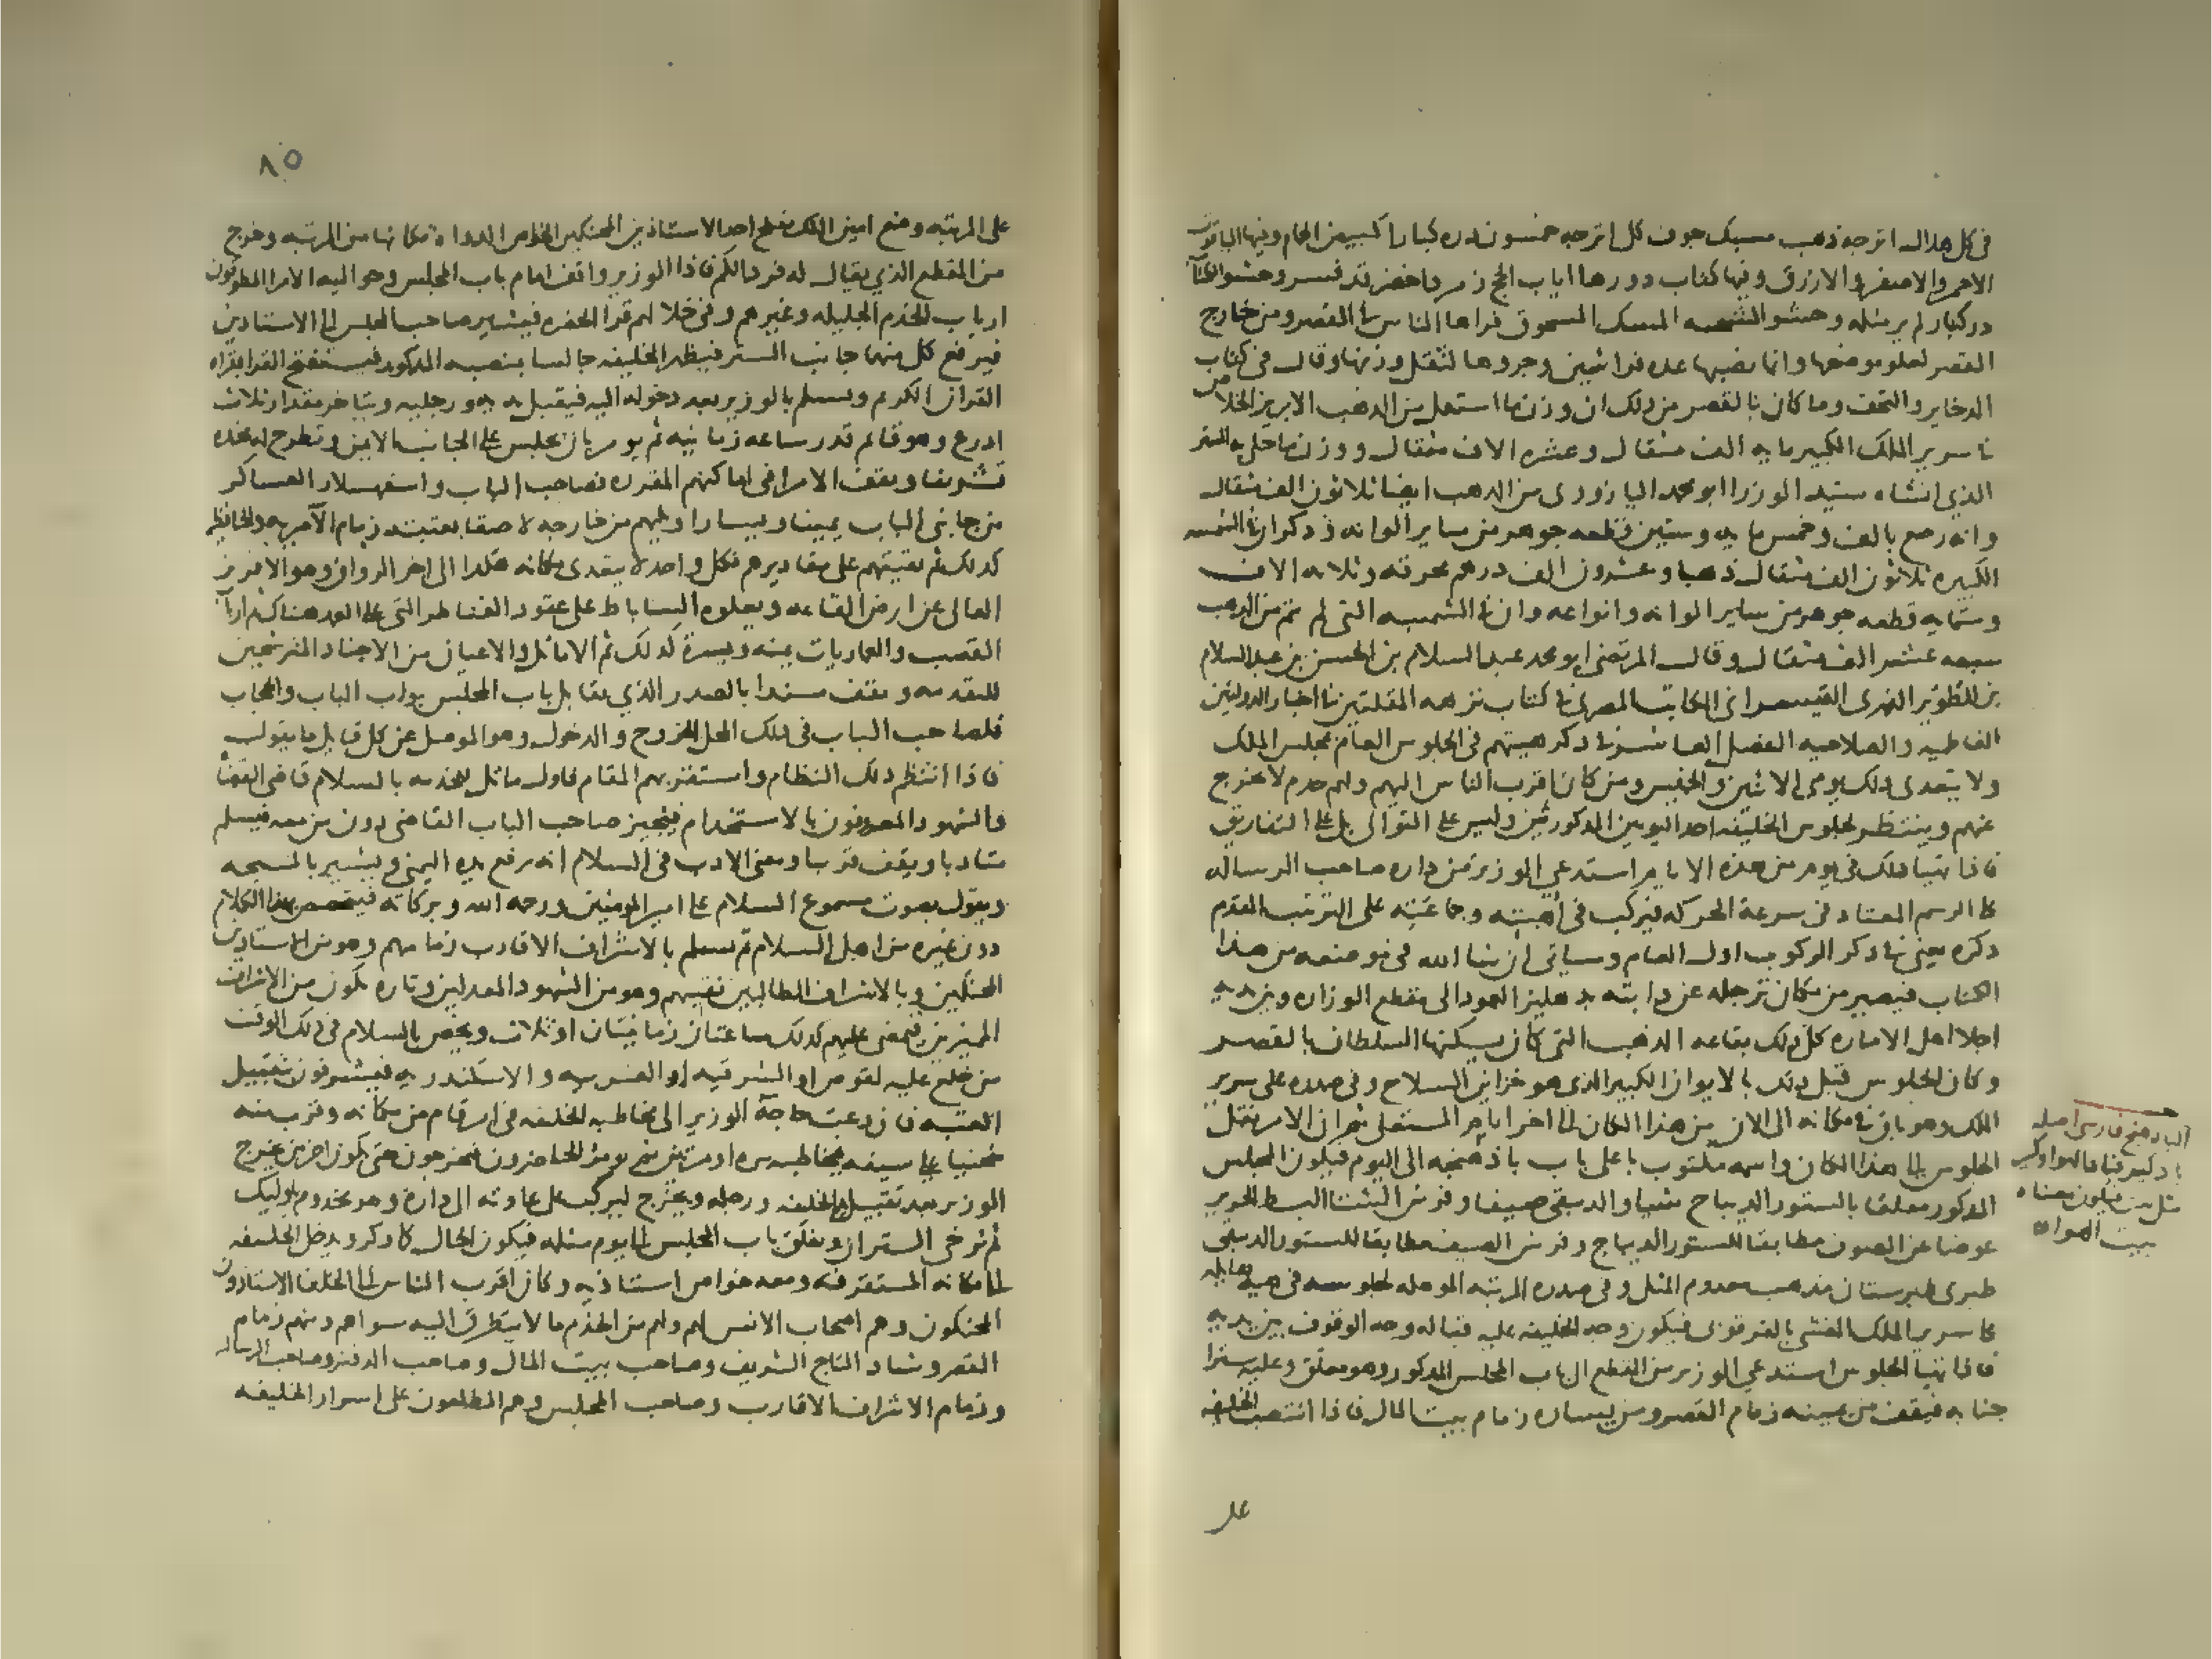 في كل هلال اترجه ذهب مسبك جوف كل اترجه خمسون دره كبار اكبر من الحمام وفيها الياقوت
الاحمر والاصفر والازرق وفيها كتاب دورها ايات الحج زمرد اخضر قد فسر وحشو الكتابة
در كبار لم ير مثله وحشو الشمسه المسك المسحوق فراها الناس في القصر ومن خارج
القصر لعلو موضعها وانما نصبها عده فراشين وجروها لثقل وزنها وقال في كتاب
الدخاير والتحف وما كان بالقصر من ذلك ان وزن ما استعمل من الذهب الابريز الخالص
في سرير الملك الكبير مايه الف مثقال وعشره الاف مثقال ووزن ما حلي به الستر
الذي انشاه سيد الوزرا ابو محمد اليازوري من الذهب ايضا ثلاثون الف مثقال
وانه رصع بالف وخمس مايه وستين قطعه جوهر من ساير الوانه وذكر ان في الشمسه
الكبيره ثلاثون الف مثقال ذهبا وعشرون الف درهم محرقه وثلاثه الاف
وستمايه قطعه جوهر من ساير الوانه وانواعه وان في الشمسيه التي لم تتم من الذهب
سبعه عشر الف مثقال وقال المرتضى ابو محمد عبد السلام بن الحسن بن عبد السلام
بن الطوير الفهرى القيسراني الكاتب المصرى في كتاب نزهه المقلتين في اخبار الدولتين
الفاطميه والصلاحيه الفصل العاشر في ذكر هيئتهم في الجلوس العام بمجلس الملك
ولا يتعدى ذلك يومي الاثنين والخميس ومن كان اقرب الناس اليهم ولهم خدم لا تخرج
عنهم وينتظر لجلوس الخليفه احد اليومين المذكورين وليس على التوالي بل على التفاريق
فاذا تهيا ذلك في يوم من هذه الايام استدعي الوزير من داره صاحب الرساله
على الرسم المعتاد في سرعة الحركه فيركب في ابهته وجماعته على الترتيب المقدم
ذكره يعني في ذكر الركوب اول العام وسياتي ان شا الله في موضعه من هذا
الكتاب فيصير من مكان ترجله عن دابته بدهليز العمود الى مقطع الوزاره وبين يديه
اجلا اهل الاماره كل ذلك بقاعه الذهب التي كان يسكنها السلطان بالقصر
وكان الجلوس قبل ذلك بالايوان الكبير الذي هو خزاين السلاح وفي صدره على سرير
الملك وهو باق في مكانه الى الان من هذا المكان الى اخر ايام المستعلي ثم ان الامر نقل
الجلوس الى هذا المكان واسمه مكتوب باعلى باب باذهنجه الى اليوم فيكون المجلس
المذكور معلقا بالستور الديباج شتيا والدبيقي صيفا وفرش الشتا البسط الحرير
عوضا عن الصوف مطابقا للستور الديباج وفرش الصيف مطابقا للستور الدبيقي
طبرى طبرستان مذهب معدوم المثل وفي صدره المرتبه الموهله لجلوسه في هيئة جليله
على سرير الملك المغشى بالقرقوبى فيكون وجه الخليفه عليه قباله وجه الوقوف بين يديه
فاذا تهيا الجلوس استدعي الوزير من المقطع الى باب المجلس المذكور وهو مغلق وعليه سترا
جنابه فيقف من يمينه زمام القصر ومن يساره زمام بيت المال فاذا انتصب الخليفه
على
الباذهنج فارسى اصله
بيت الهواه
٨٥
على المرتبه وضع امين الملك مفلح احد الاستاذين المحنكين الخواص الدواه مكانها من المرتبه وخرج
من المقطع الذي يقال له فرد الكم فاذا الوزير واقف امام باب المجلس وحواليه الامرا المطوقون
ارباب الخدم الجليله وغيرهم وفي خلالهم قرا الحضره فيشير صاحب المجلس الى الاستاذين
فيرفع كل منهما جانب الستر فيظهر الخليفه جالسا بمنصبه المذكور فيستفتح القرا بقراه
القران الكريم ويسلم الوزير بعد دخوله اليه فيقبل يديه ورجليه ويتاخر مقدار ثلاث
ادرع وهو قايم قدر ساعه زمانيه ثم يومر بان يجلس على الجانب الايمن وتطرح له مخده
تشريفا ويقف الامرا في اماكنهم المقرره فصاحب الباب واسفهسلار العساكر
من جانبي الباب يمينا ويسارا ويليهم من خارجه لاصقا بعتبته زمام الآمريه والحافظيه
كذلك ثم يقيتهم على مقاديرهم فكل واحد لا يتعدى مكانه هكذا الى اخر الرواق وهو الافريز
العالي عن ارض القاعه ويعلوه الساباط على عقود القناطر التي على العمد هناك ثم ارباب
القصب والعماريات يمنه ويسرة كذلك ثم الاماثل والاعيان من الاجناد المترشحين
للتقدمه ويقف مستندا بالصدر الذي يقابل باب المجلس بواب الباب والحجاب
فلصاحب الباب في ذلك المحل الخروج والدخول وهو الموصل عن كل قايل ما يقول
فاذا انتظم ذلك النظام واستقر بهم المقام فاول ماثل للخدمه بالسلام قاضي القضاة
والشهود المعروفون بالاستخدام فيجيز صاحب الباب القاضي دون من معه فيسلم
متادبا ويقف قريبا ومعنى الادب في السلام انه يرفع يده اليمنى ويشير بالمسبحه
ويقول بصوت مسموع السلام على امير المومنين ورحمه الله وبركاته فيتخصص بهذا الكلام
دون غيره من اهل السلام ثم يسلم بالاشراف الاقارب زمامهم وهو من الاستاذين
المحنكين وبالاشراف الطالبيين نقيبهم وهو من الشهود المعدلين وتاره يكون من الاشراف
المميزين فيمضى عليهم كذلك ساعتان زمانيتان او ثلاث ويخص بالسلام في ذلك الوقت
من خلع عليه لقوص او الشرقيه او الغربيه والاسكندريه فيشرفون بتقبيل
العتبه فان دعت حاجة الوزير الى مخاطبه الخليفه في امر قام من مكانه وقرب منه
منحنيا على سيفه فيخاطبه مره او مرتين ثم يومر الحاضرون فيخرجون حتى يكون اخر من يخرج
الوزير بعد تقبيل يد الخليفه ورجله ويخرج ليركب على عادته الى داره وهو مخدوم باوليك
ثم ترخى الستران ويغلق باب المجلس الى يوم مثله فيكون الحال كما ذكر ويدخل الخليفه
الى مكانه المستقر فيه ومعه خواص استاذيه وكان اقرب الناس الى الخلفا الاستاذون
المحنكون وهم اصحاب الانس لهم ولهم من الخدم ما لا يتطرق اليه سواهم ومنهم زمام
القصر وشاد التاج الشريف وصاحب بيت المال وصاحب الدفتر وصاحب الرساله
وزمام الاشراف الاقارب وصاحب المجلس وهم المطلعون على اسرار الخليفه